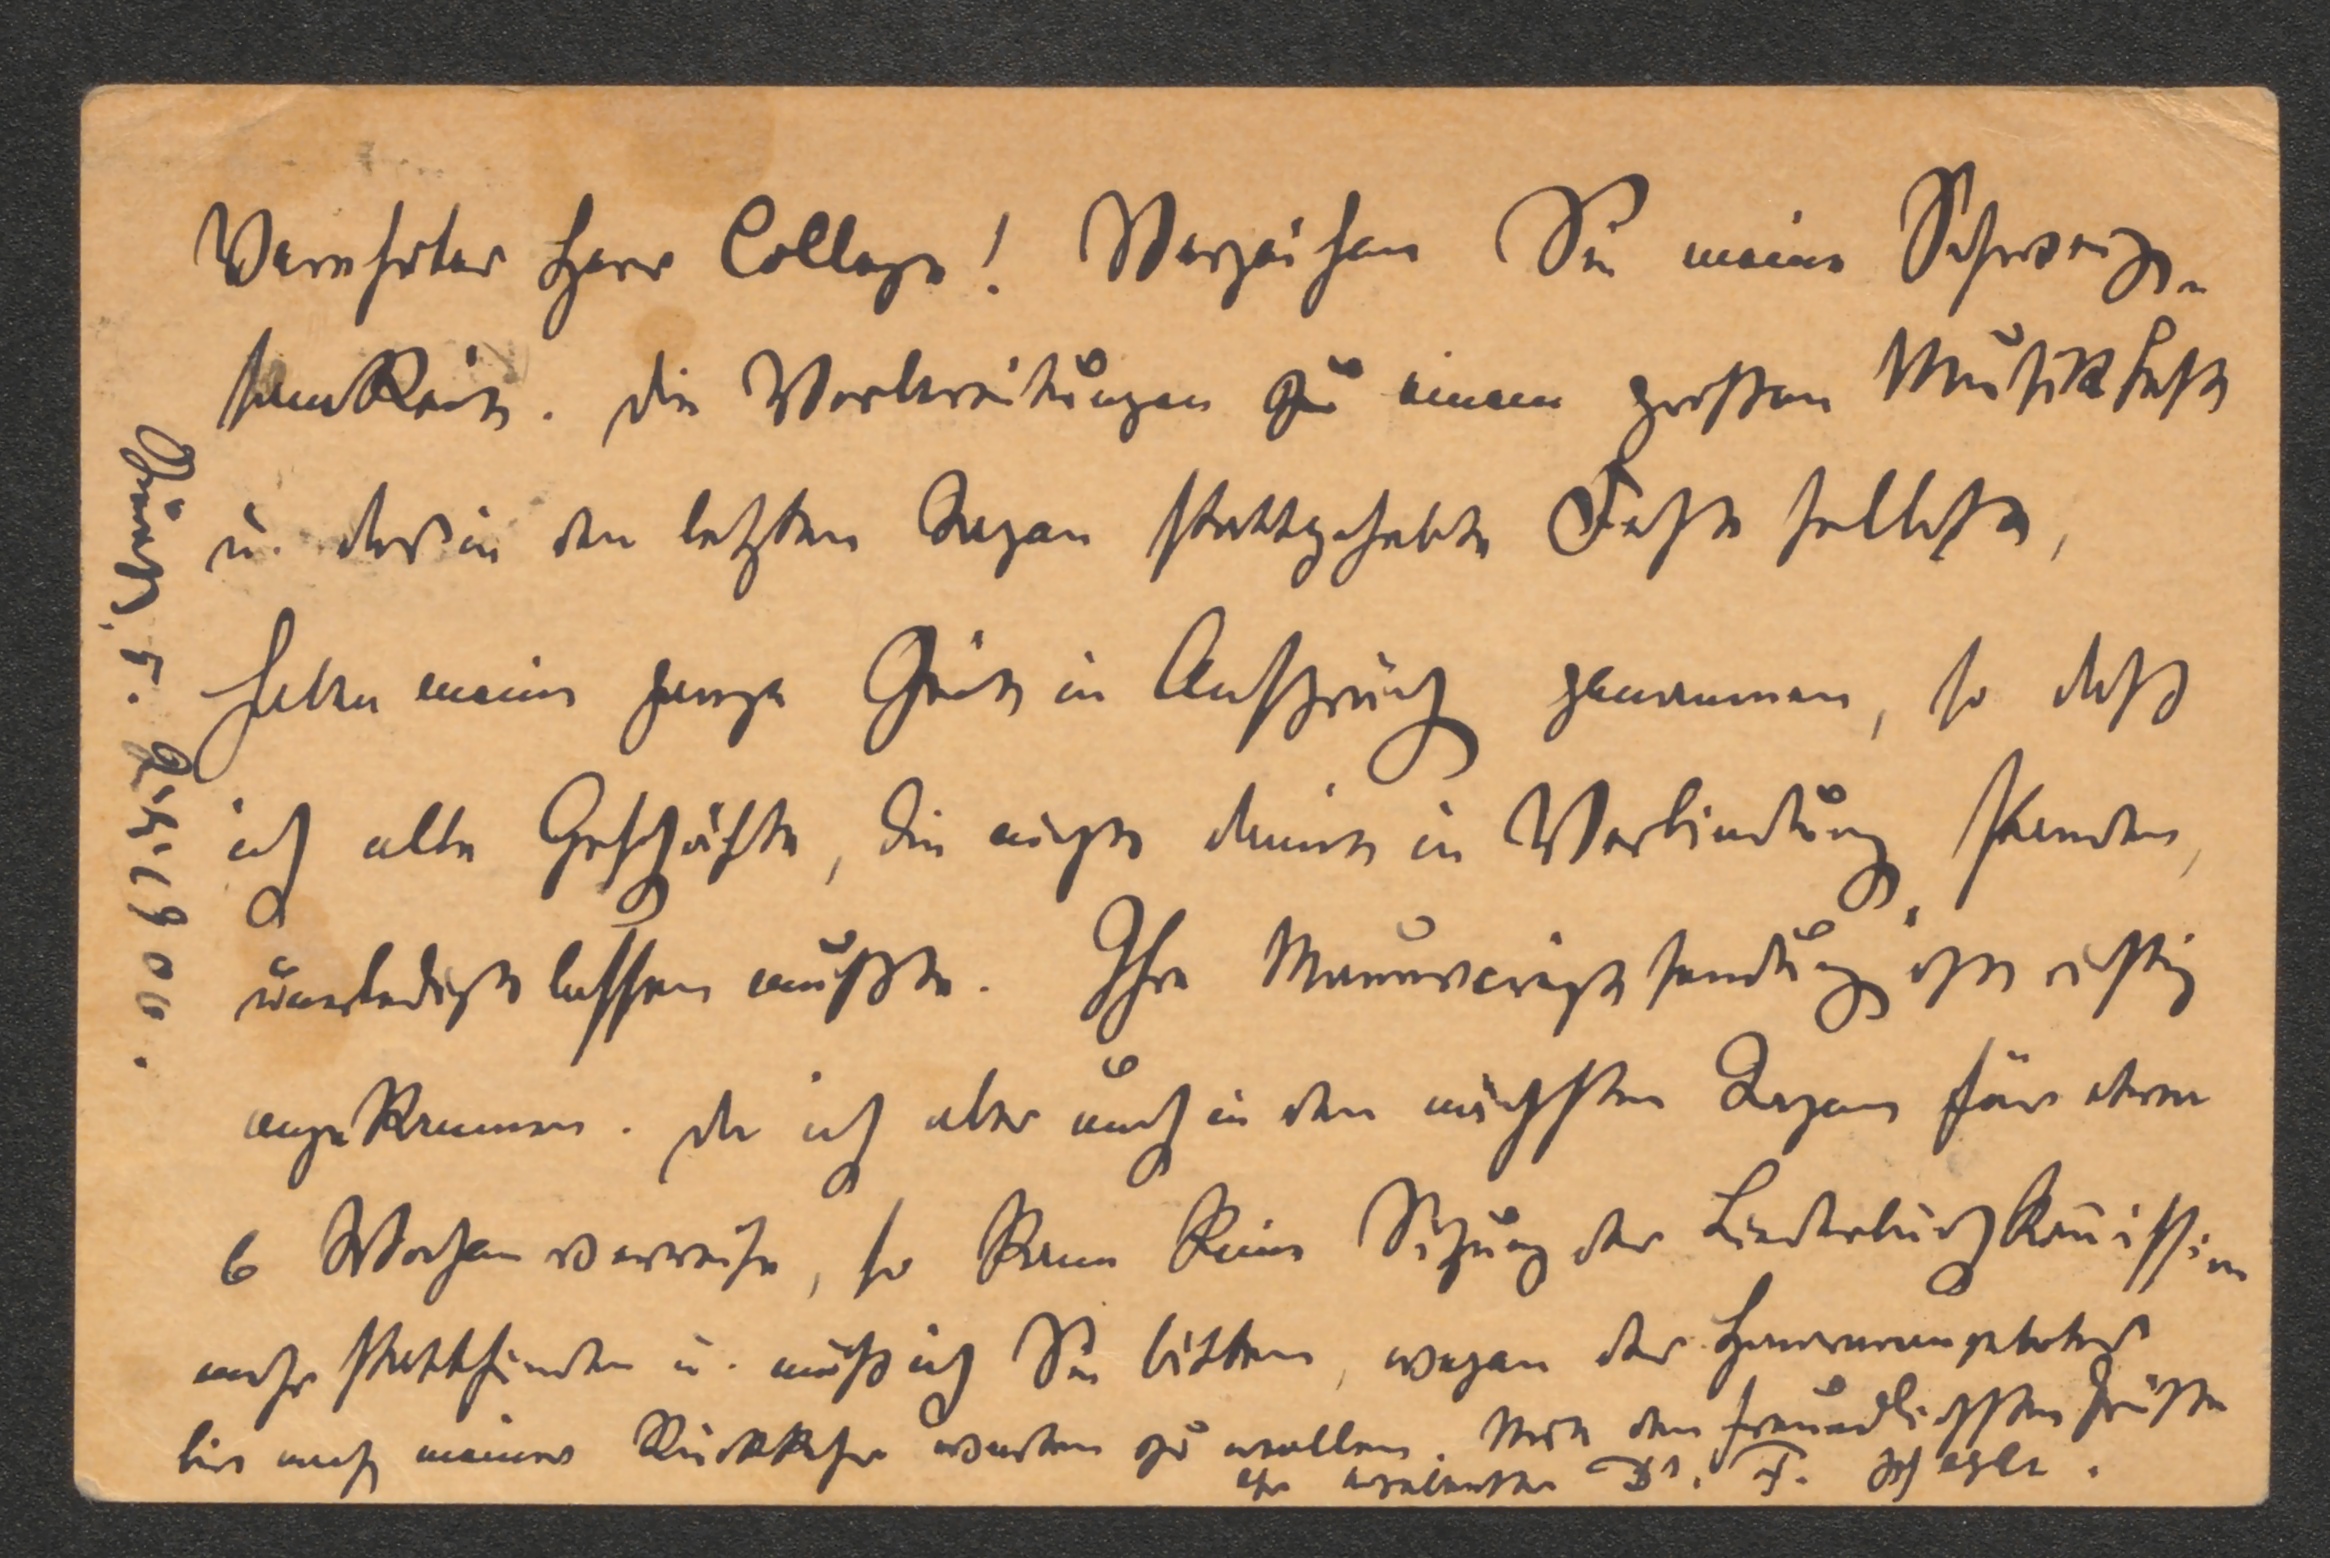 Verehrter Herr College! Verzeihen Sie meine Schweig-
samkeit. Die Vorbereitungen zu einem großen Musikfeste
u. das in den letzten Tagen stattgehabte Feste selbst,
haben meine ganze Zeit in Anspruch genommen, so daß
ich alle Geschäfte, die nicht damit in Verbindung standen,
unerledigt lassen mußte. Ihre Manuscriptsendung ist richtig
angekommen. Da ich aber auch in den nächsten Tagen für etwa
6 Wochen verreise, so kann keine Sitzung der Liederbuchkom̄ission
mehr stattfinden u. muß ich Sie bitten, wegen des Honorarangebotes
bis nach meiner Rückkehr warten zu wollen. Mit den freundlichsten Grüßen
Ihr ergebenster Dr. F. Hegar.
Zürich, 5. Juli 1900.